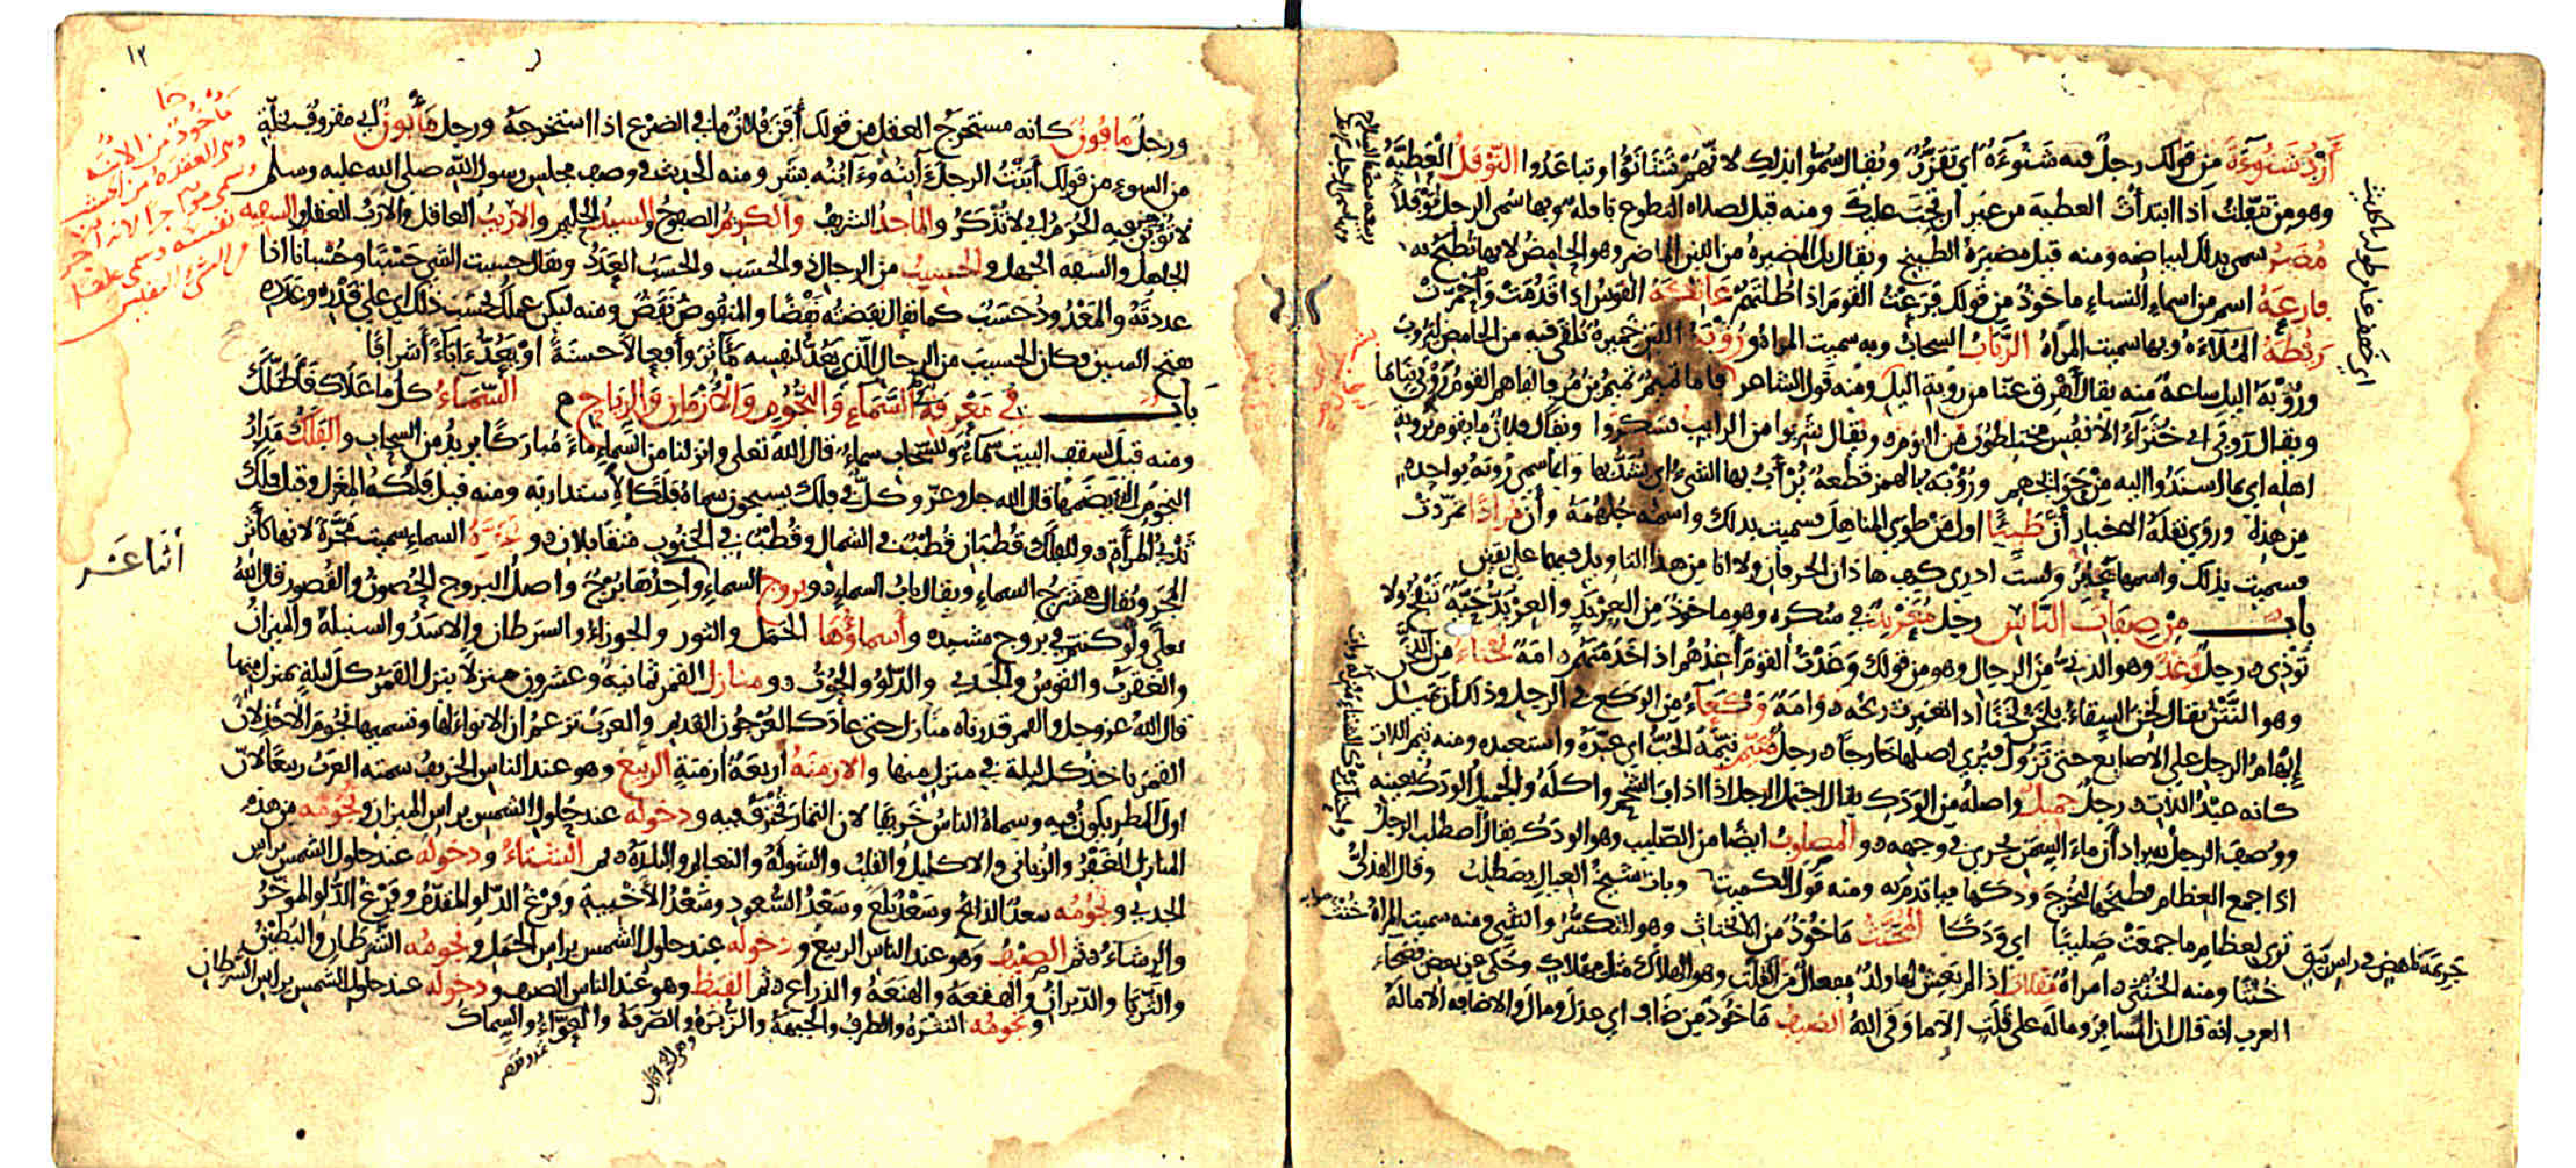 أزد شنوءة من قولك رجل فيه شنوءة أي تقزز ويقال سموا بذلك لانهم تشانؤا وتباعدوا النوفل العطية
وهو من تنفلت اذا ابتدأت العطية من غير ان تجب عليك ومنه قيل لصلاة التطوع نافلة وبها سمي الرجل نوفلا
مضر سمي بذلك لبياضه ومنه قيل مضيرة الطبيخ ويقال بل المضيرة من اللبن الماضر وهو الحامض لانها تطبخ به
فارعة اسم من اسماء النساء ماخوذ من قولك فرعت القوم اذا طلتهم عاتكة القوس اذا قدمت واحمرت
ريطة الملاءة وبها سميت المرأة الرباب السحاب وبه سميت المراة ورؤبة اللبن خميرة تلقى فيه من الحامض ليروب
ورؤبة الليل ساعة منه يقال أهرق عنا من رؤبة الليل ومنه قول الشاعر فاما تميم تميم بن مر فالفاهم القوم روبى نياما
ويقال روبى اي خثراء الانفس مختلطون من النوم ويقال شربوا من الرايب فسكروا ويقال فلان ما يقوم بروبة
اهله اي بما اسندوا اليه من حوائجهم ورؤبة بالهمز قطعة يرأب بها الشيء اي يشد بها وانما سمي رؤبة بواحدة
من هذه وروى نقلة الاخبار أن طيئا اول من طوى المناهل فسميت بذلك واسمه جلهمة وأن مرادا تمردت
فسميت بذلك واسمها يحابر ولست ادري كيف هاذان الحرفان ولا انا من هذا التاويل فيهما على يقين
باب من صفات الناس رجل معربد في سكره وهو ماخوذ من العربد والعربد حية تنفخ ولا
تؤذي رجل وغد وهو الدنيء من الرجال وهو من قولك وغدت القوم أغدهم اذا خدمتهم امة لخناء من اللخن
وهو النتن يقال لخن السقاء يلخن لخنا اذا تغيرت ريحه وامة وكعاء من الوكع في الرجل وذلك أن تميل
إبهام الرجل على الاصابع حتى تزول فيرى اصلها خارجا رجل متيم تيمه الحب اي عبده واستعبده ومنه تيم اللات
كانه عبد اللات رجل جميل واصله من الودك يقال اجتمل الرجل اذا اذاب الشحم واكله والجميل الودك بعينه
ووصف الرجل به يراد أن ماء السمن يجري في وجهه والمصلوب ايضا من الصليب وهو الودك يقال اصطلب الرجل
اذا جمع العظام فطبخها ليخرج ودكها فياتدم به ومنه قول الكميت وبات شيخ العيال يصطلب وقال الهذلي
جريمة ناهض في راس نيق ترى لعظام ما جمعت صليبا اي ودكا المخنث ماخوذ من الانخناث وهو التكسر والتثني ومنه سميت المراة
خنثا ومنه الخنثى امراة مقلات اذا لم يعش لها ولد مفعال من القلت وهو الهلاك مثل مهلاك وحكي عن بعض فصحاء
العرب انه قال ان المسافر وماله على قلت الا ما وقى الله الضيف ماخوذ من ضاف اي عدل ومال والاضافة الامالة
١٢
ورجل مافون كانه مستخرج العقل من قولك أفن فلان ما في الضرع اذا استخرجه ورجل مأبون اي مقروف بخلة
من السوء من قولك أبنت الرجل آبنه وءابنه بشر ومنه الحديث في وصف مجلس رسول الله صلى الله عليه وسلم
لا تؤبن فيه الحرم اي لا تذكر والماجد الشريف والكريم الصفوح والسيد الحليم والاريب العاقل والارب العقل والسفيه
الجاهل والسفه الجهل والحسيب من الرجال ذو الحسب والحسب العدد ويقال حسبت الشي حسبا وحسبانا اذا
عددته والمعدود حسب كما يقال نفضته نفضا والمنفوض نفض ومنه ليكن عملك بحسب ذلك اي على قدره وعدده
بفتح السين فكان الحسيب من الرجال الذي يعد لنفسه مآثر وأفعالا حسنة او يعد ءاباءً أشرافا
باب في معرفة السماء والنجوم والازمان والرياح السماء كل ما علاك فأظلك
ومنه قيل لسقف البيت سماء وللسحاب سماء قال الله تعلى وانزلنا من السماء ماء مباركا يريد من السحاب والفلك مدار
النجوم الذي يضمها قال الله جل وعز وكل في فلك يسبحون سماه فلكا لاستدارته ومنه قيل فلكة المغزل وقيل فلك
ثدي المرأة وللفلك قطبان قطب في الشمال وقطب في الجنوب متقابلان ومجرة السماء سميت مجرة لانها كأثر
المجر ويقال هي شرج السماء ويقال باب السماء وبروج السماء واحدها برج واصل البروج الحصون والقصور قال الله
تعلى ولو كنتم في بروج مشيدة وأسماؤها الحمل والثور والجوزاء والسرطان والاسد والسنبلة والميزان
والعقرب والقوس والجدي والدلو والحوت ومنازل القمر ثمانية وعشرون منزلا ينزل القمر كل ليلة بمنزل منها
قال الله عز وجل والقمر قدرناه منازل حتى عاد كالعرجون القديم والعرب تزعم ان الانواء لها وتسميها نجوم الاخذ لان
القمر ياخذ كل ليلة في منزل منها والازمنة اربعة أزمنة الربيع وهو عند الناس الخريف سمته العرب ربيعا لان
اول المطر يكون فيه وسماه الناس خريفا لان الثمار تخترف فيه ودخوله عند حلول الشمس براس الميزان ونجومه من هذه
المنازل الغفر والزبانى والاكليل والقلب والشولة والنعايم والبلدة ثم الشتاء ودخوله عند حلول الشمس براس
الجدي ونجومه سعد الذابح وسعد بلع وسعد السعود وسعد الأخبية وفرغ الدلو المقدم وفرغ الدلو المؤخر
والرشاء ثم الصيف وهو عند الناس الربيع ودخوله عند حلول الشمس براس الحمل ونجومه الشرطان والبطين
والثريا والدبران والهقعة والهنعة والذراع ثم القيظ وهو عند الناس الصيف ودخوله عند حلول الشمس براس السرطان
ونجومه النثرة والطرف والجبهة والزبرة والصرفة والعواء والسماك
أثنا عشر